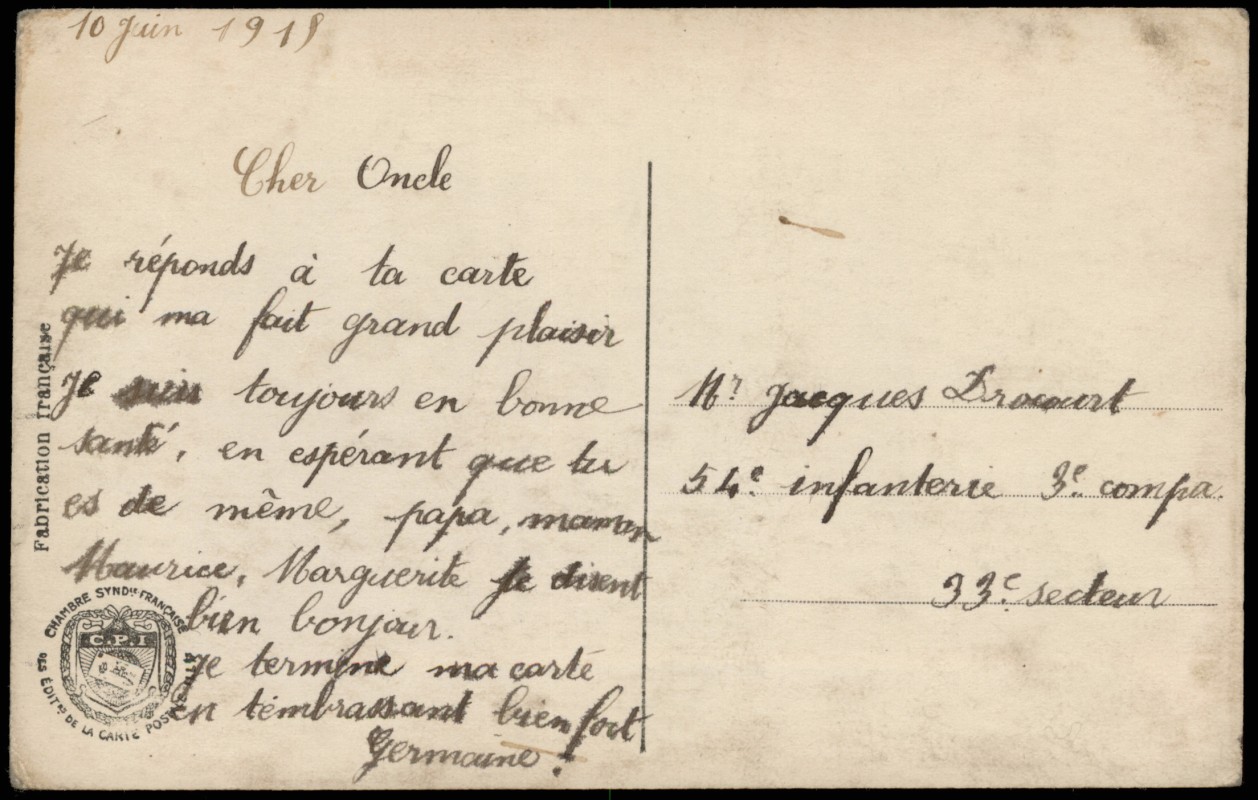 10 Juin 1915
Cher Oncle
Je réponds à ta carte
qui ma fait grand plaisir
Je suis toujours en bonne
santé, en espérant que tu
es de même, papa, maman
Maurice, Marguerite te disent
bien bonjour.
Je termine ma carte
en tembrassant bien fort
Germaine !
Fabrication française
CHAMBRE SYND^LE FRANÇAISE
C.P.I
DE LA CARTE POSTALE
Mr Jacques Dricourt
54e infanterie 3e compa.
33e secteur